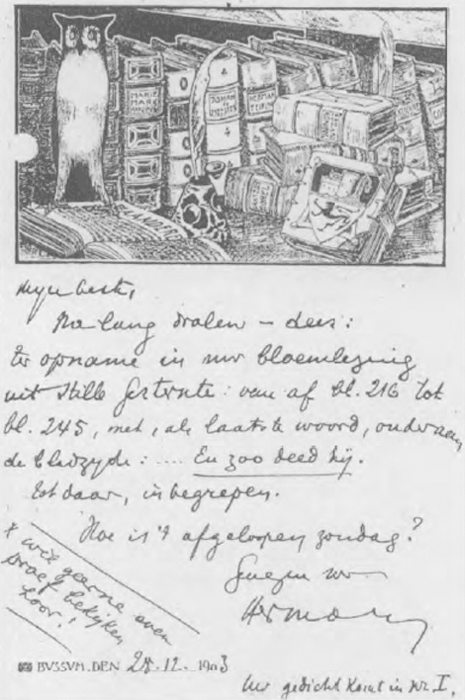 JOHAN
Na lang dralen – dees:
ter opname in uw bloemlezing
uit Stille Gesternte: van af bl. 216 tot
bl. 245, met, als laatste woord, onderaan
de bladzyde: .... En zoo deed hij.
tot daar, inbegrepen.
Hoe is 't afgeloopen zondag?
Herman
wil gaarne even
proef bekijken
hoor!
BUSSUM, DEN 28.12. 1903
Uw gedicht komt in Nr. I.